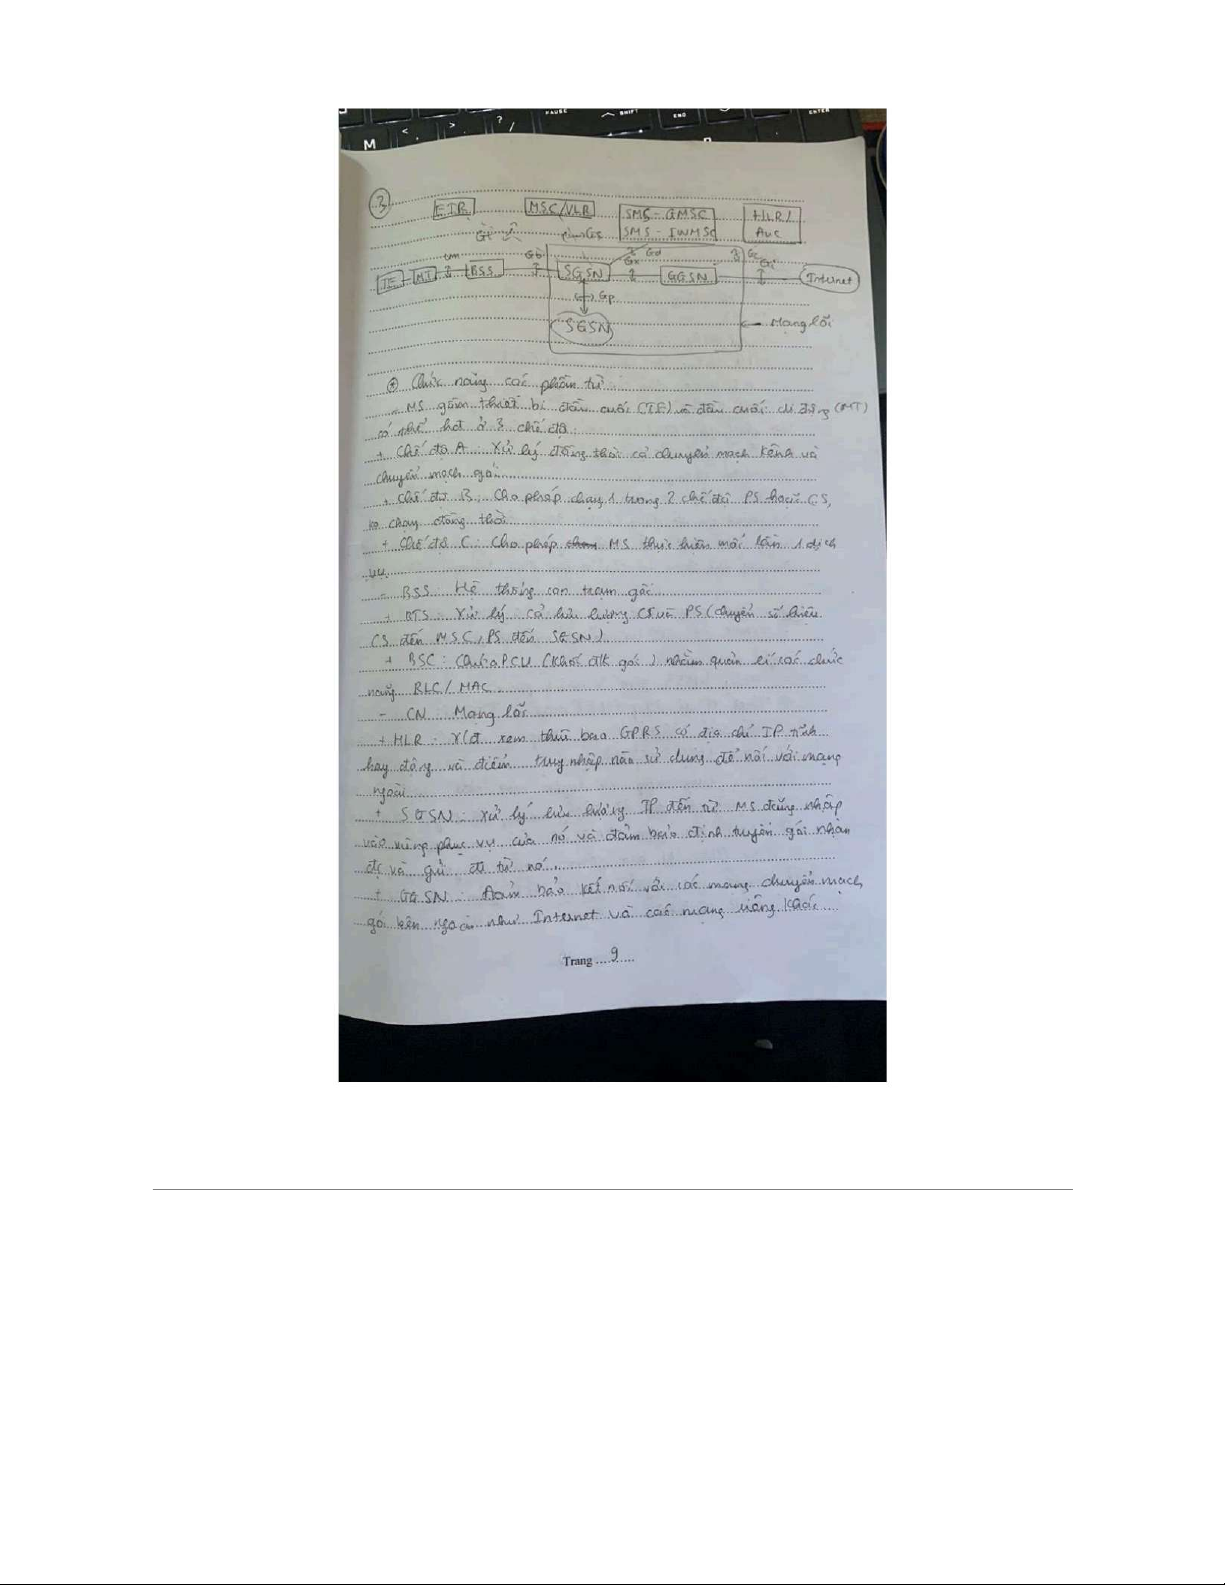 PAUSE
SHIFT
END
ENTER
M
<
,
>
.
?
/
3
EIR
MSC/VLR
SMS - GMSC
SMS - IWMSC
HLR/
AuC
Gf
Gs
Um
Gb
Gn
Gd
Gc
Gi
TE
MT
BSS
SGSN
GGSN
Internet
Gp
SGSN
Mạng lõi
Chức năng các phần tử
- MS gồm thiết bị đầu cuối (TE) và đầu cuối di động (MT)
có thể hđ ở 3 chế độ:
+ Chế độ A: Xử lý đồng thời cả chuyển mạch kênh và
chuyển mạch gói
+ Chế độ B: Cho phép chạy 1 trong 2 chế độ PS hoặc CS,
ko chạy đồng thời
+ Chế độ C: Cho phép MS thực hiện mỗi lần 1 dịch
vụ
- BSS: Hệ thống con trạm gốc
+ BTS: Xử lý cả lưu lượng CS và PS (chuyển số liệu
CS đến MSC, PS đến SGSN)
+ BSC: Chứa PCU (Khối đk gói) nhằm quản lí các chức
năng RLC/MAC
- CN: Mạng lõi
+ HLR: X/đ xem thuê bao GPRS có địa chỉ IP tĩnh
hay động và điểm truy nhập nào sử dụng để nối với mạng
ngoài
+ SGSN: xử lý lưu lượng IP đến từ MS đăng nhập
vào vùng phục vụ của nó và đảm bảo định tuyến gói nhận
đc và gửi đi từ nó.
+ GGSN: Đảm bảo kết nối với các mạng chuyển mạch
gói bên ngoài như Internet và các mạng riêng khác
Trang 9